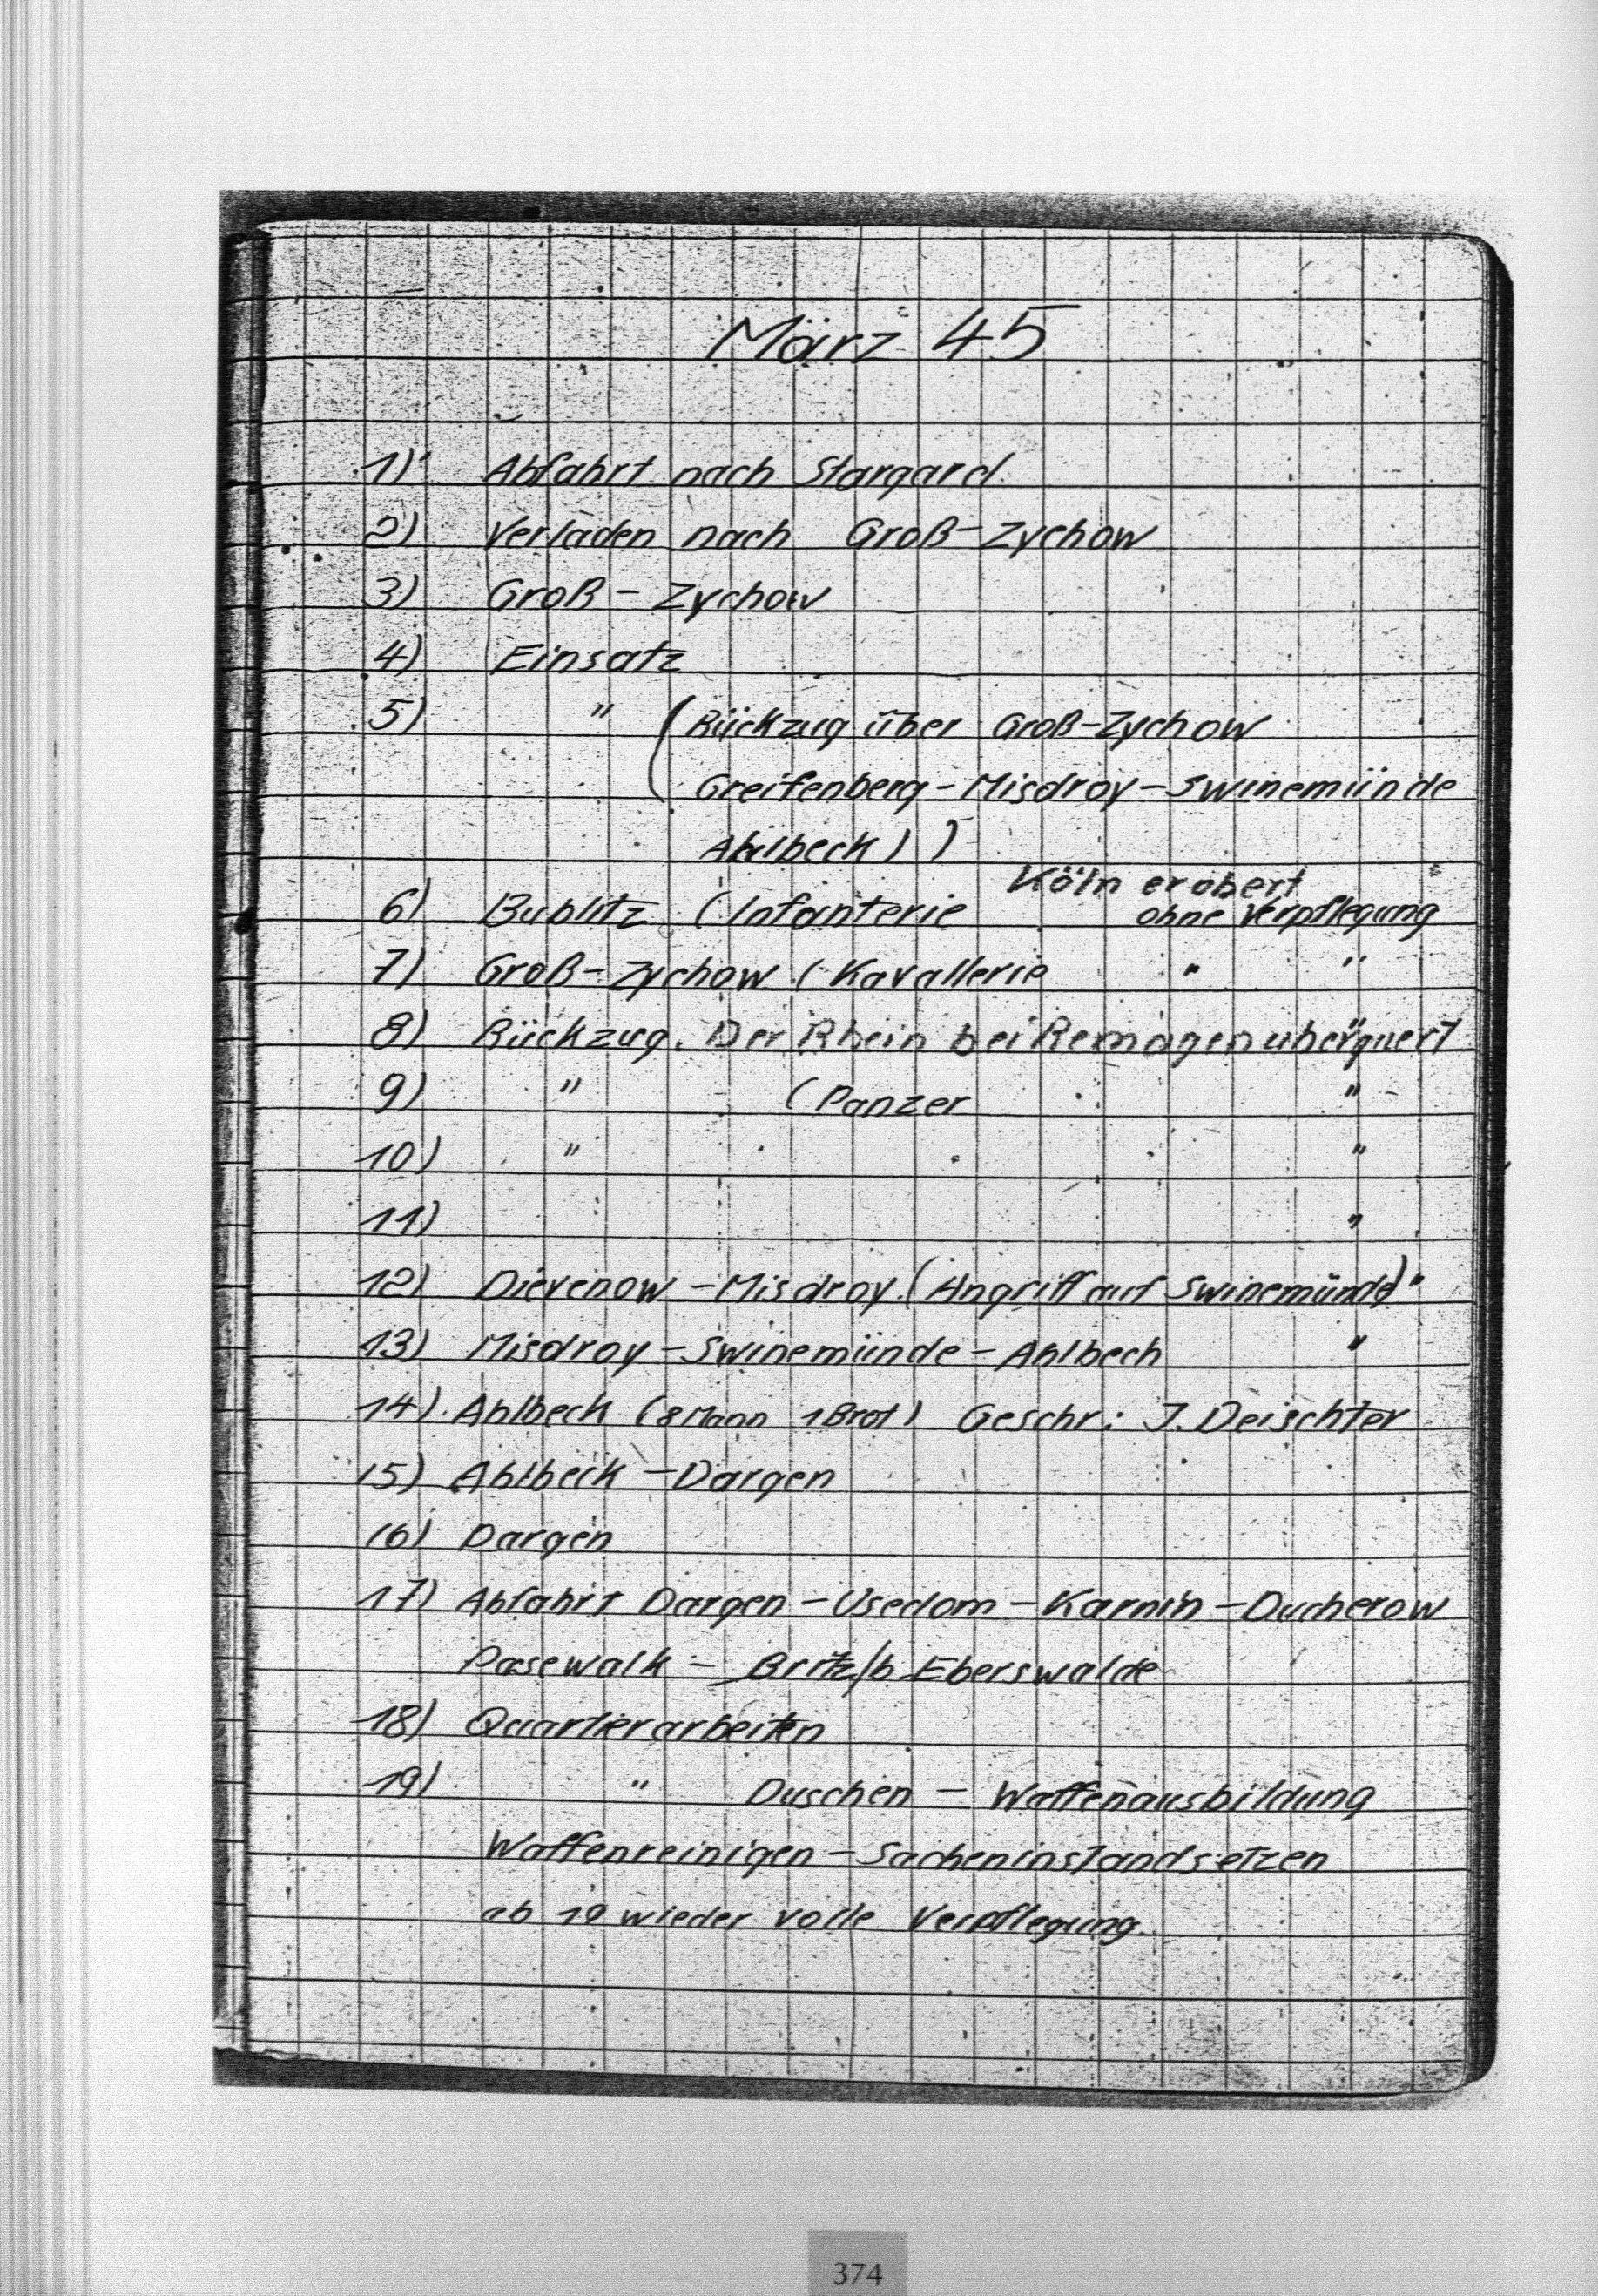 März 45
1) Abfahrt nach Stargard
2) Verladen nach Groß-Zychow
3) Groß-Zychow
4) Einsatz
5) " (Rückzug über Groß-Zychow
Greifenberg-Misdroy-Swinemünde
Ahlbeck))
Köln erobert
6) Bublitz (Infanterie ohne Verpflegung
7) Groß-Zychow (Kavallerie " "
8) Rückzug. Der Rhein bei Remagen überquert "
9) " (Panzer "
10) " "
11) "
12) Dievenow-Misdroy (Angriff auf Swinemünde) "
13) Misdroy-Swinemünde-Ahlbech "
14) Ahlbeck (8 Mann 1 Brot) Geschr: J. Deischter
15) Ahlbeck-Dargen
16) Dargen
17) Abfahrt Dargen-Usedom-Karnin-Ducherow
Pasewalk-Britz/b Eberswalde
18) Quartierarbeiten
19) " Duschen - Waffenausbildung
Waffenreinigen-Sacheninstandsetzen
ab 19 wieder volle Verpflegung.
374